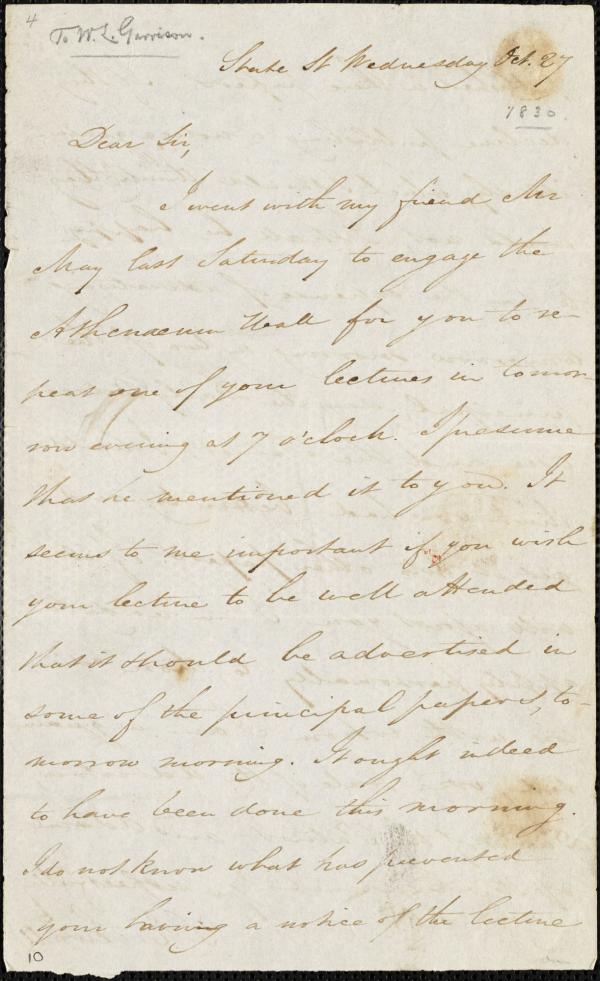 4
To W. L. Garrison.
State St Wednesday Oct. 27
1830.
Dear Sir,
I went with my friend Mr
May last Saturday to engage the
Athenaeum Hall for you to re-
peat one of your lectures in tomor-
row evening at 7 o'clock. I presume
that he mentioned it to you. It
seems to me important if you wish
your lecture to be well attended
that it should be advertised in
some of the principal papers, to-
morrow morning. It ought indeed
to have been done this morning.
I do not know what has prevented
your having a notice of the lecture
10